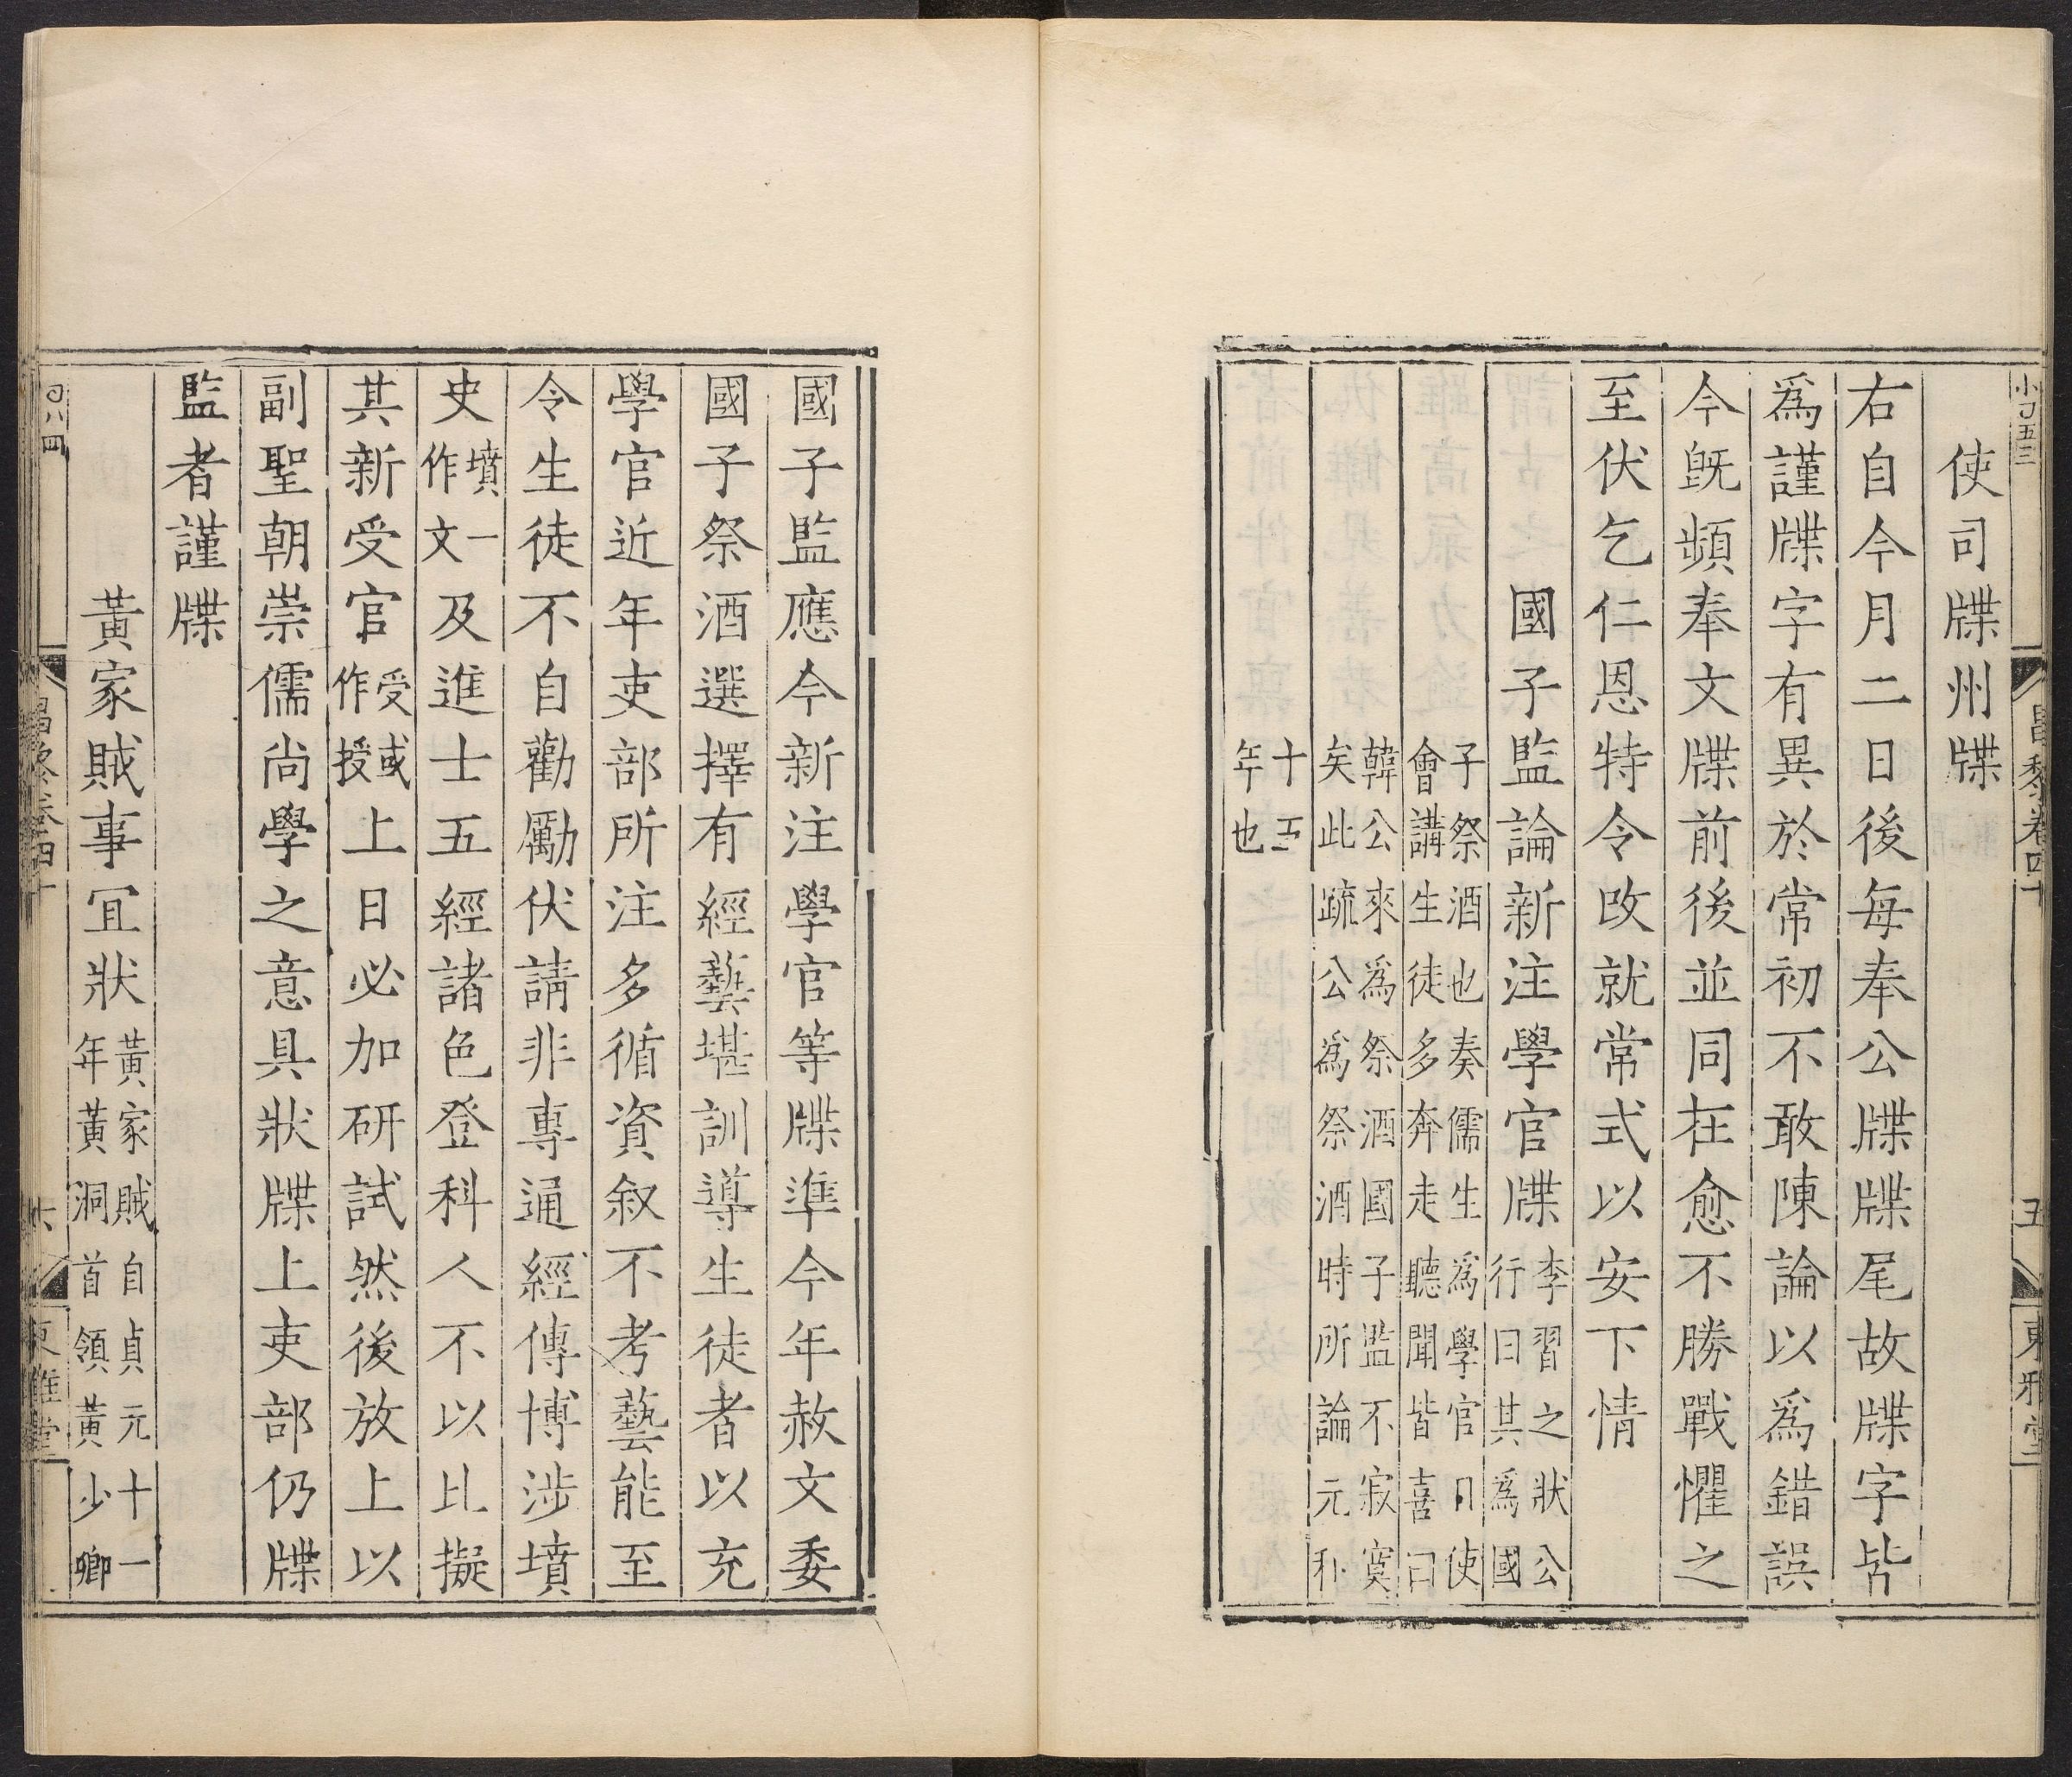 使司牒州牒
右自今月二日後每奉公牒牒尾故牒字皆
爲謹牒字有異於常初不敢陳論以爲錯誤
今旣頻奉文牒前後並同在愈不勝戰懼之
至伏乞仁恩特令改就常式以安下情
國子監論新注學官牒李習之狀公行曰其爲國
子祭酒也奏儒生爲學官日使會講生徒多奔走聽聞皆喜曰
韓公來爲祭酒國子監不寂寞矣此䟽公爲祭酒時所論元和
十五年也
昌黎卷四十
五
東雅堂
國子監應今新注學官等牒準今年赦文委
國子祭酒選擇有經藝堪訓導生徒者以充
學官近年吏部所注多循資叙不考藝能至
令生徒不自勸勵伏請非專通經傳博涉墳
史墳一作文及進士五經諸色登科人不以比擬
其新受官受或作授上日必加研試然後放上以
副聖朝崇儒尚學之意具狀牒上吏部仍牒
監者謹牒
黃家賊事宜狀黃家賊自貞元十一年黃洞首領黃少卿
昌黎卷四十
六
東雅堂